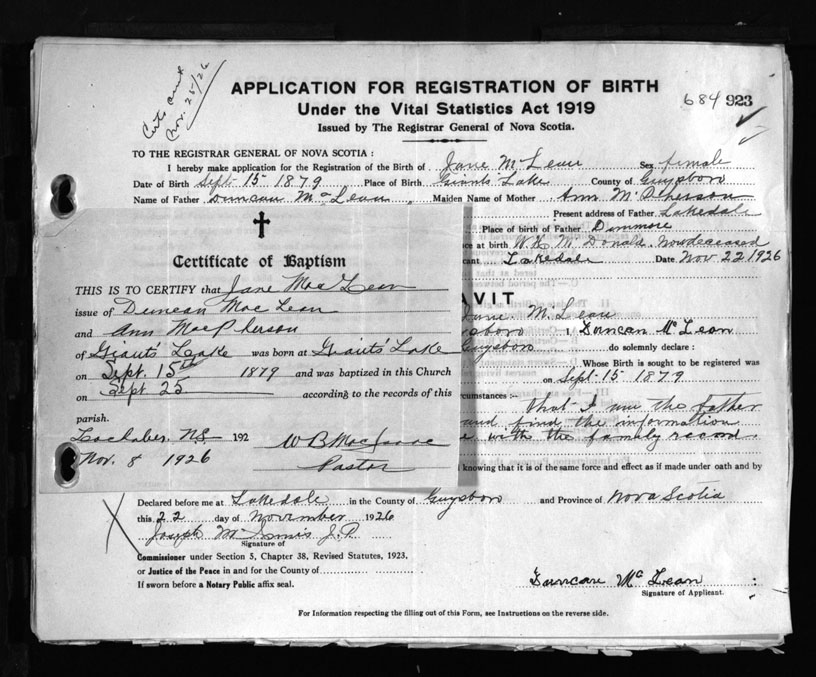 Certs and
Nov. 25/26
APPLICATION FOR REGISTRATION OF BIRTH
684 923
Under the Vital Statistics Act 1919
Issued by The Registrar General of Nova Scotia.
TO THE REGISTRAR GENERAL OF NOVA SCOTIA :
I hereby make application for the Registration of the Birth of Jane McLean Sex female
Date of Birth Sept 15 1879 Place of Birth Giants Lake County of Guysboro
Name of Father Duncan McLean Maiden Name of Mother Ann McPherson
Present address of Father Lakedale
Place of birth of Father Dunmore
ce at birth W. H. McDonald. now deceased
cant Lakedale Date Nov 22 1926
Certificate of Baptism
THIS IS TO CERTIFY that Jane MacLean
issue of Duncan MacLean
and Ann MacPherson
of Giants' Lake was born at Giants' Lake
on Sept. 15th 1879 and was baptized in this Church
on Sept 25 according to the records of this
parish.
Lochaber, NS 192
Nov. 8 1926
W B MacIsaac
Pastor
AVIT
Jane McLean
ysboro I, Duncan McLean
Guysboro do solemnly declare :
Whose Birth is sought to be registered was
on Sept 15 1879
cumstances :- that I am the father
and find the information
with the family record.
knowing that it is of the same force and effect as if made under oath and by
Declared before me at Lakedale in the County of Guysboro and Province of Nova Scotia
this 22 day of November 1926
Joseph McInnis J.P.
Signature of
Commissioner under Section 5, Chapter 38, Revised Statutes, 1923,
or Justice of the Peace in and for the County of
If sworn before a Notary Public affix seal.
Duncan McLean
Signature of Applicant.
For Information respecting the filling out of this Form, see Instructions on the reverse side.